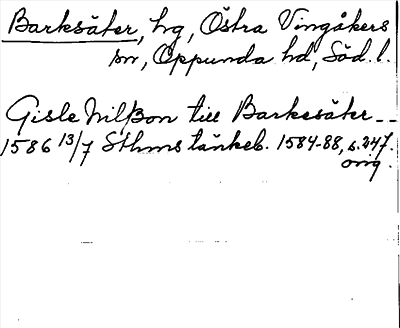 Barksäter, hg, Östra Vingåkers
sn, Oppunda hd, Söd. l.
Gisle Nilsson till Barkesäter --
1586 13/7 Sthms tänkeb. 1584-88, s. 247.
orig.